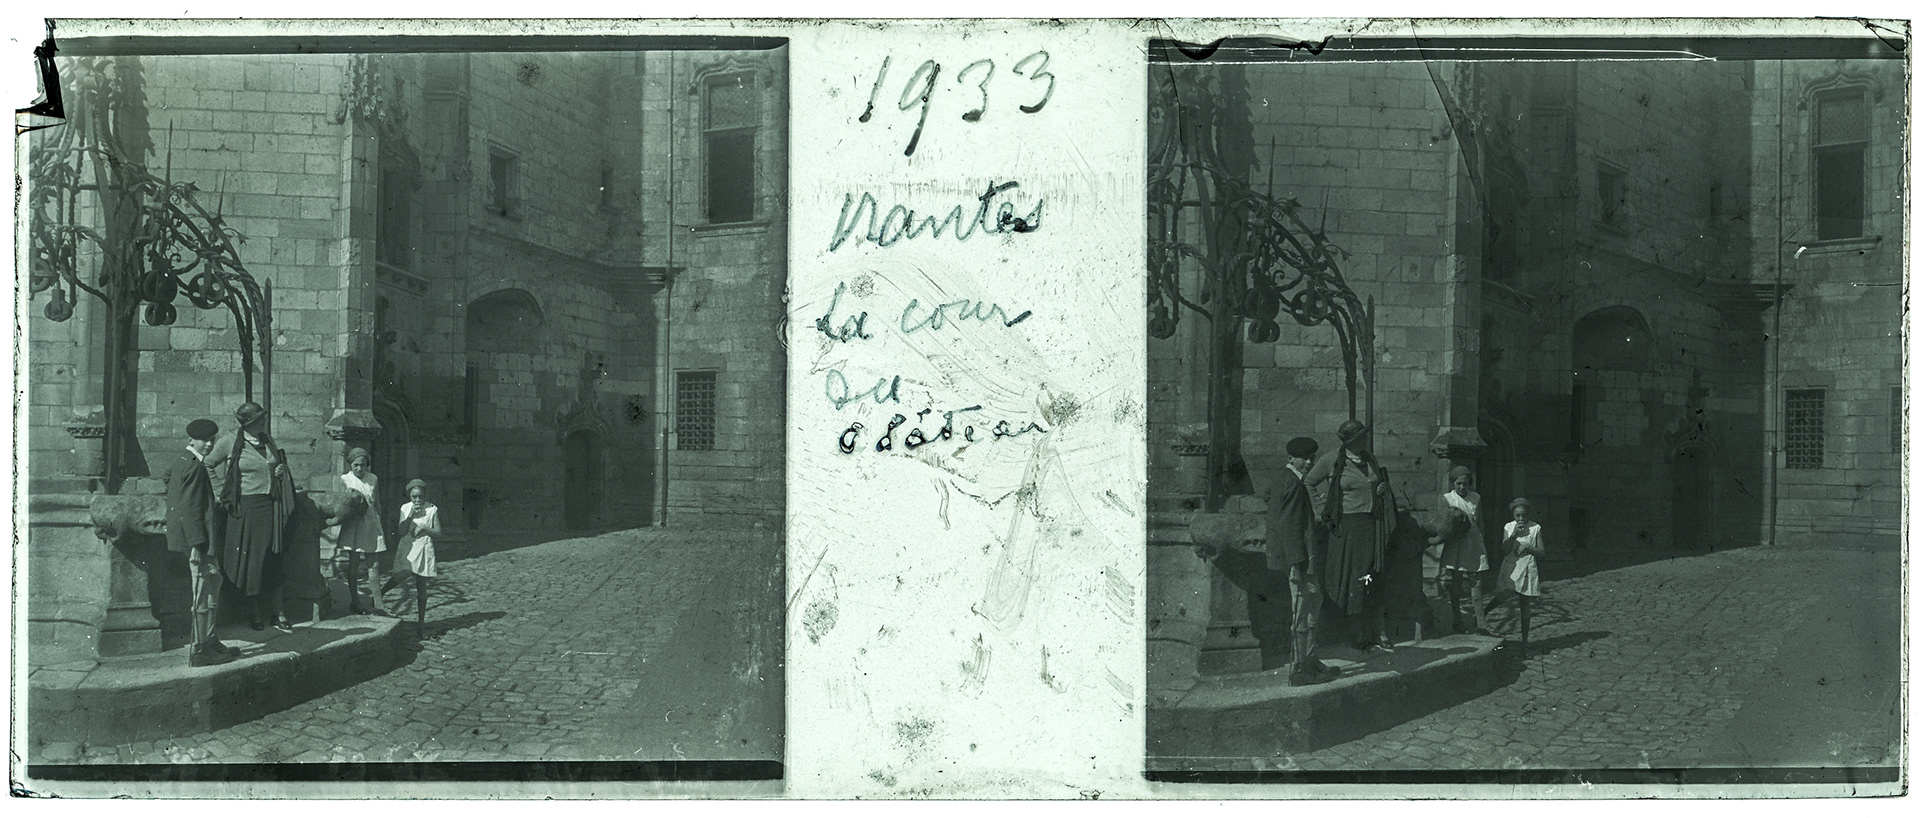 1933
Nantes
La cour
du
château